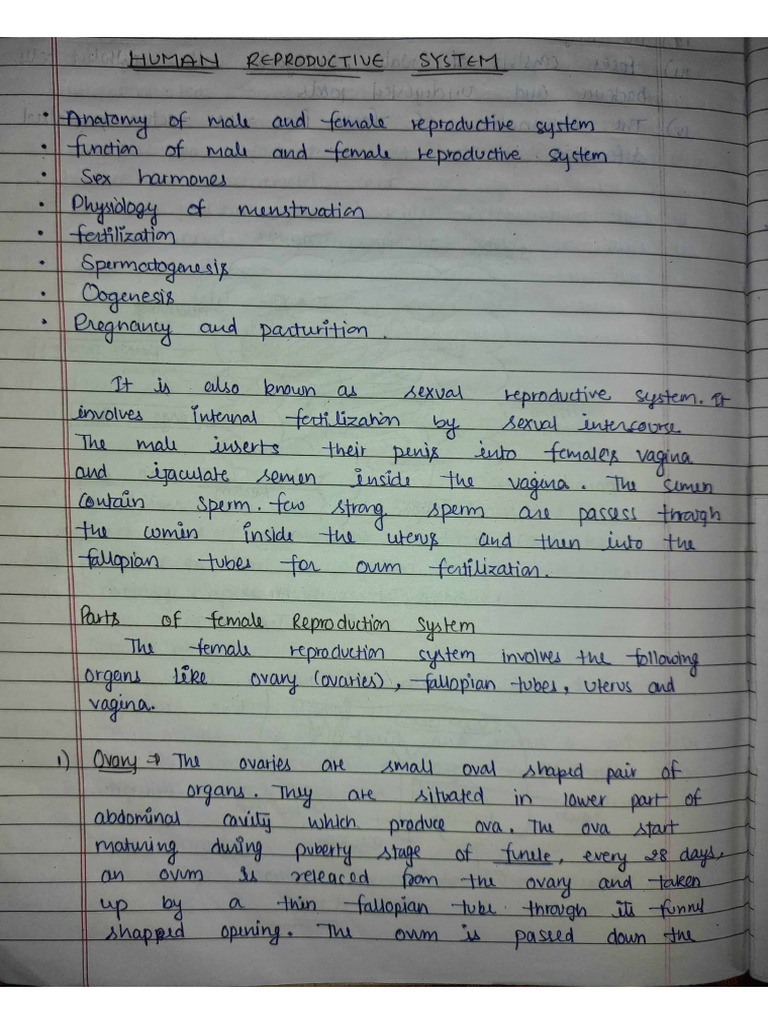 HUMAN REPRODUCTIVE SYSTEM
• Anatomy of male and female reproductive system
• function of male and female reproductive system
• Sex harmones
• Physiology of menstruation
• fertilization
• Spermatogenesis
• Oogenesis
• Pregnancy and parturition.
It is also known as sexual reproductive system. It
involves internal fertilization by sexual intercourse
The male inserts their penis into female's vagina
and ijaculate semen inside the vagina. The semen
contain sperm. few strong sperm are passess through
the comin inside the uterus and then into the
fallopian tubes for ovum fertilization.
Parts of female Reproduction System
The female reproduction system involves the following
organs like ovary (ovaries), fallopian tubes, uterus and
vagina.
1) Ovary → The ovaries are small oval shaped pair of
organs. They are situated in lower part of
abdominal cavity which produce ova. The ova start
maturing during puberty stage of , every 28 days,
an ovum is releaced from the ovary and taken
up by a thin fallopian tube through its funnel
shapped opening. The ovum is passed down the